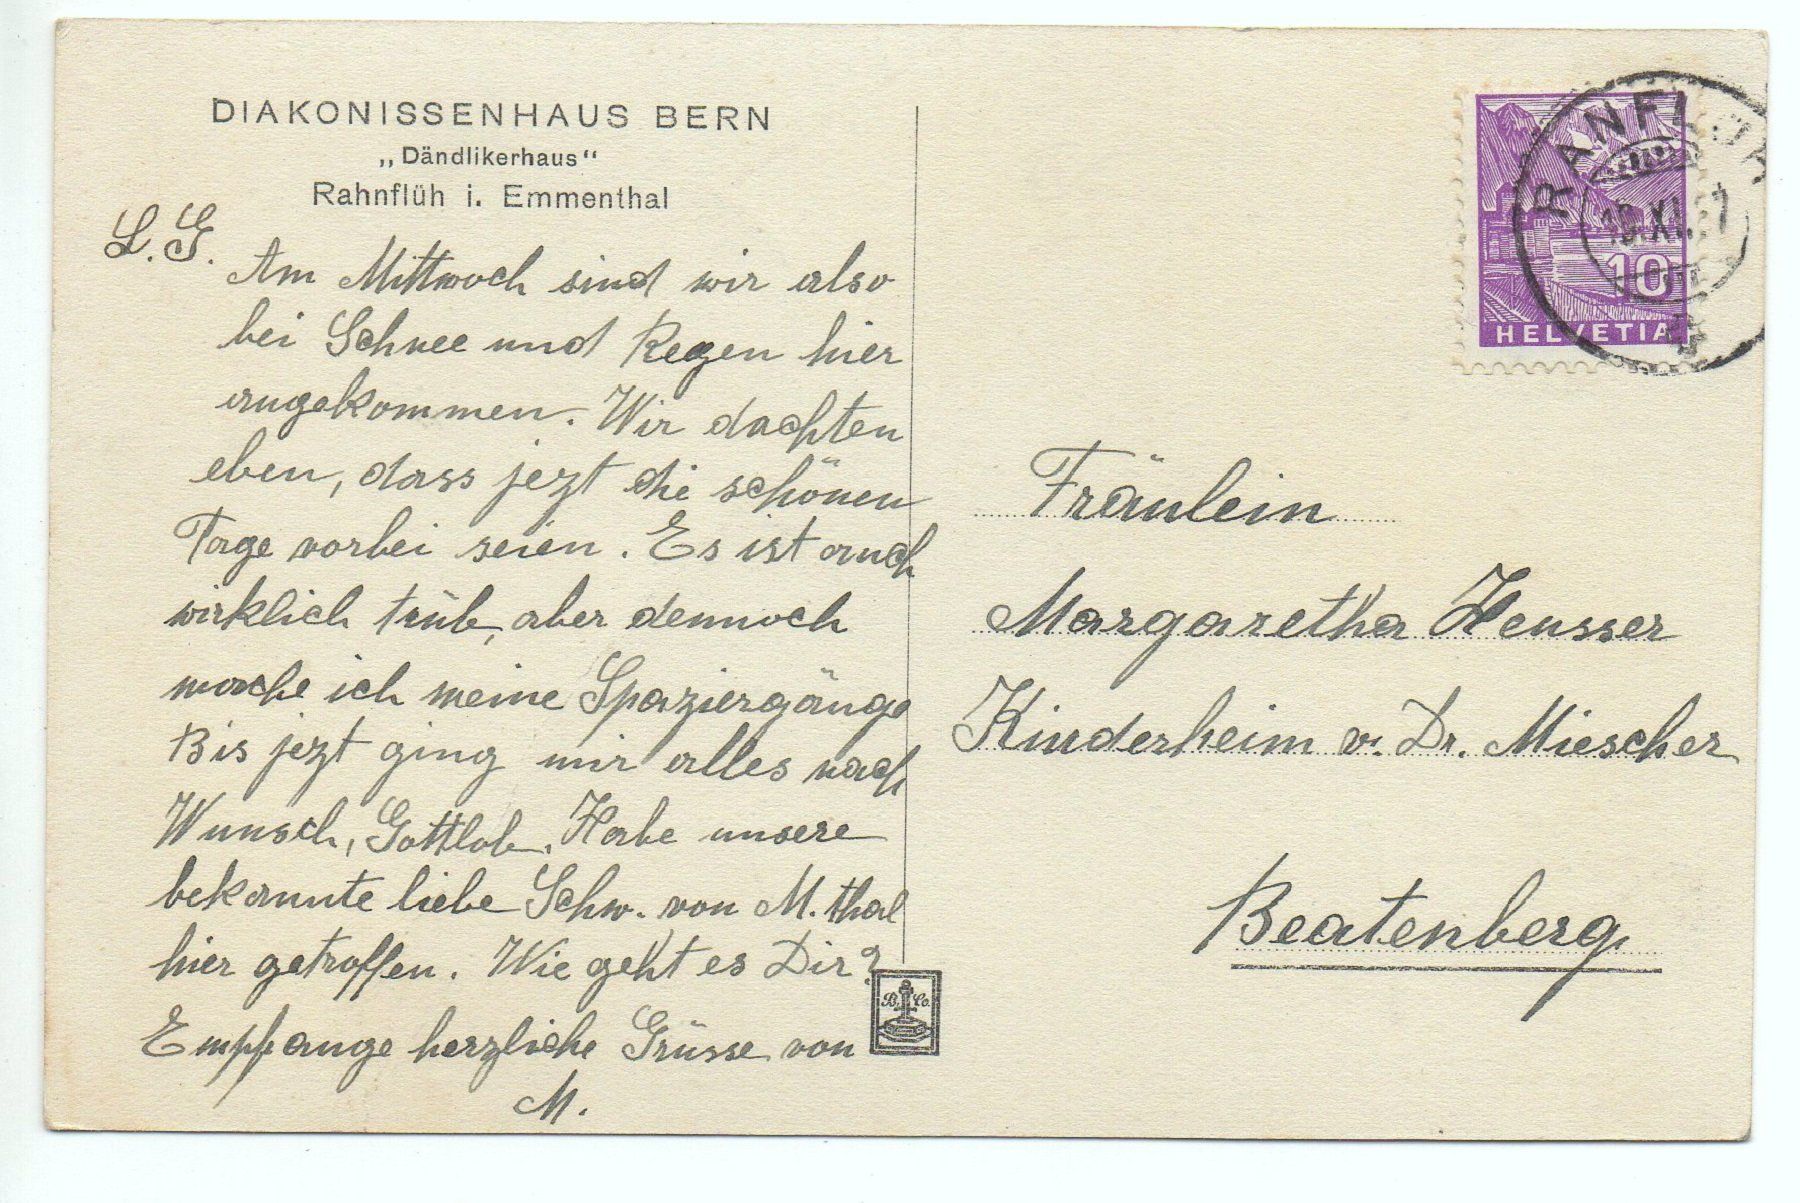 DIAKONISSENHAUS BERN
„Dändlikerhaus“
Rahnflüh i. Emmenthal
L. G.
Am Mittwoch sind wir also
bei Schnee und Regen hier
angekommen. Wir dachten
eben, dass jezt die schönen
Tage vorbei seien. Es ist auch
wirklich trüb, aber dennoch
mache ich meine Spaziergänge
Bis jezt ging mir alles nach
Wunsch, Gottlob. Habe unsere
bekannte liebe Schw. von M. thal
hier getroffen. Wie geht es Dir?
Empfange herzliche Grüsse von
M.
B. Co.
RANFLÜH
XI.
10
HELVETIA
Fräulein
Margaretha Heusser
Kinderheim v. Dr. Miescher
Beatenberg